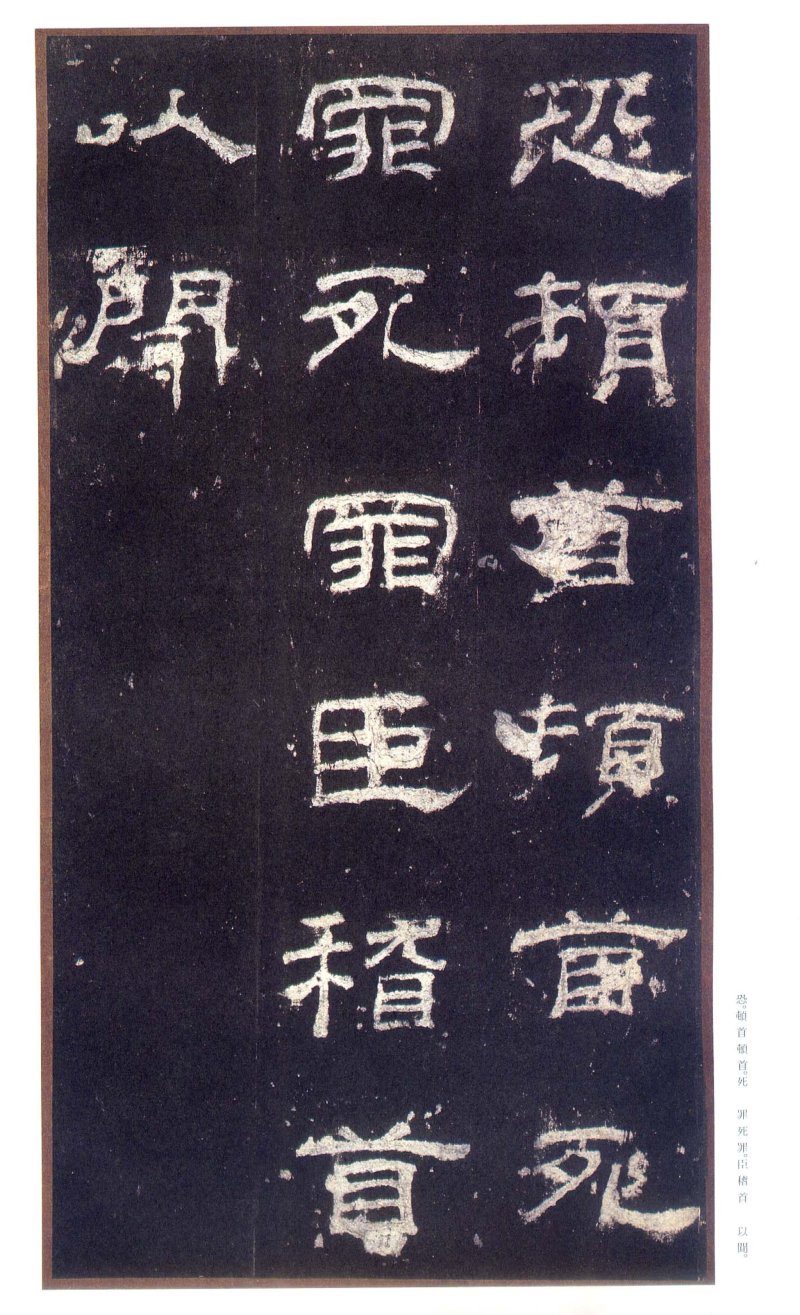 恐頓首頓首死
罪死罪臣稽首
以聞
恐。頓首頓首。死　罪死罪。臣稽首　以聞。